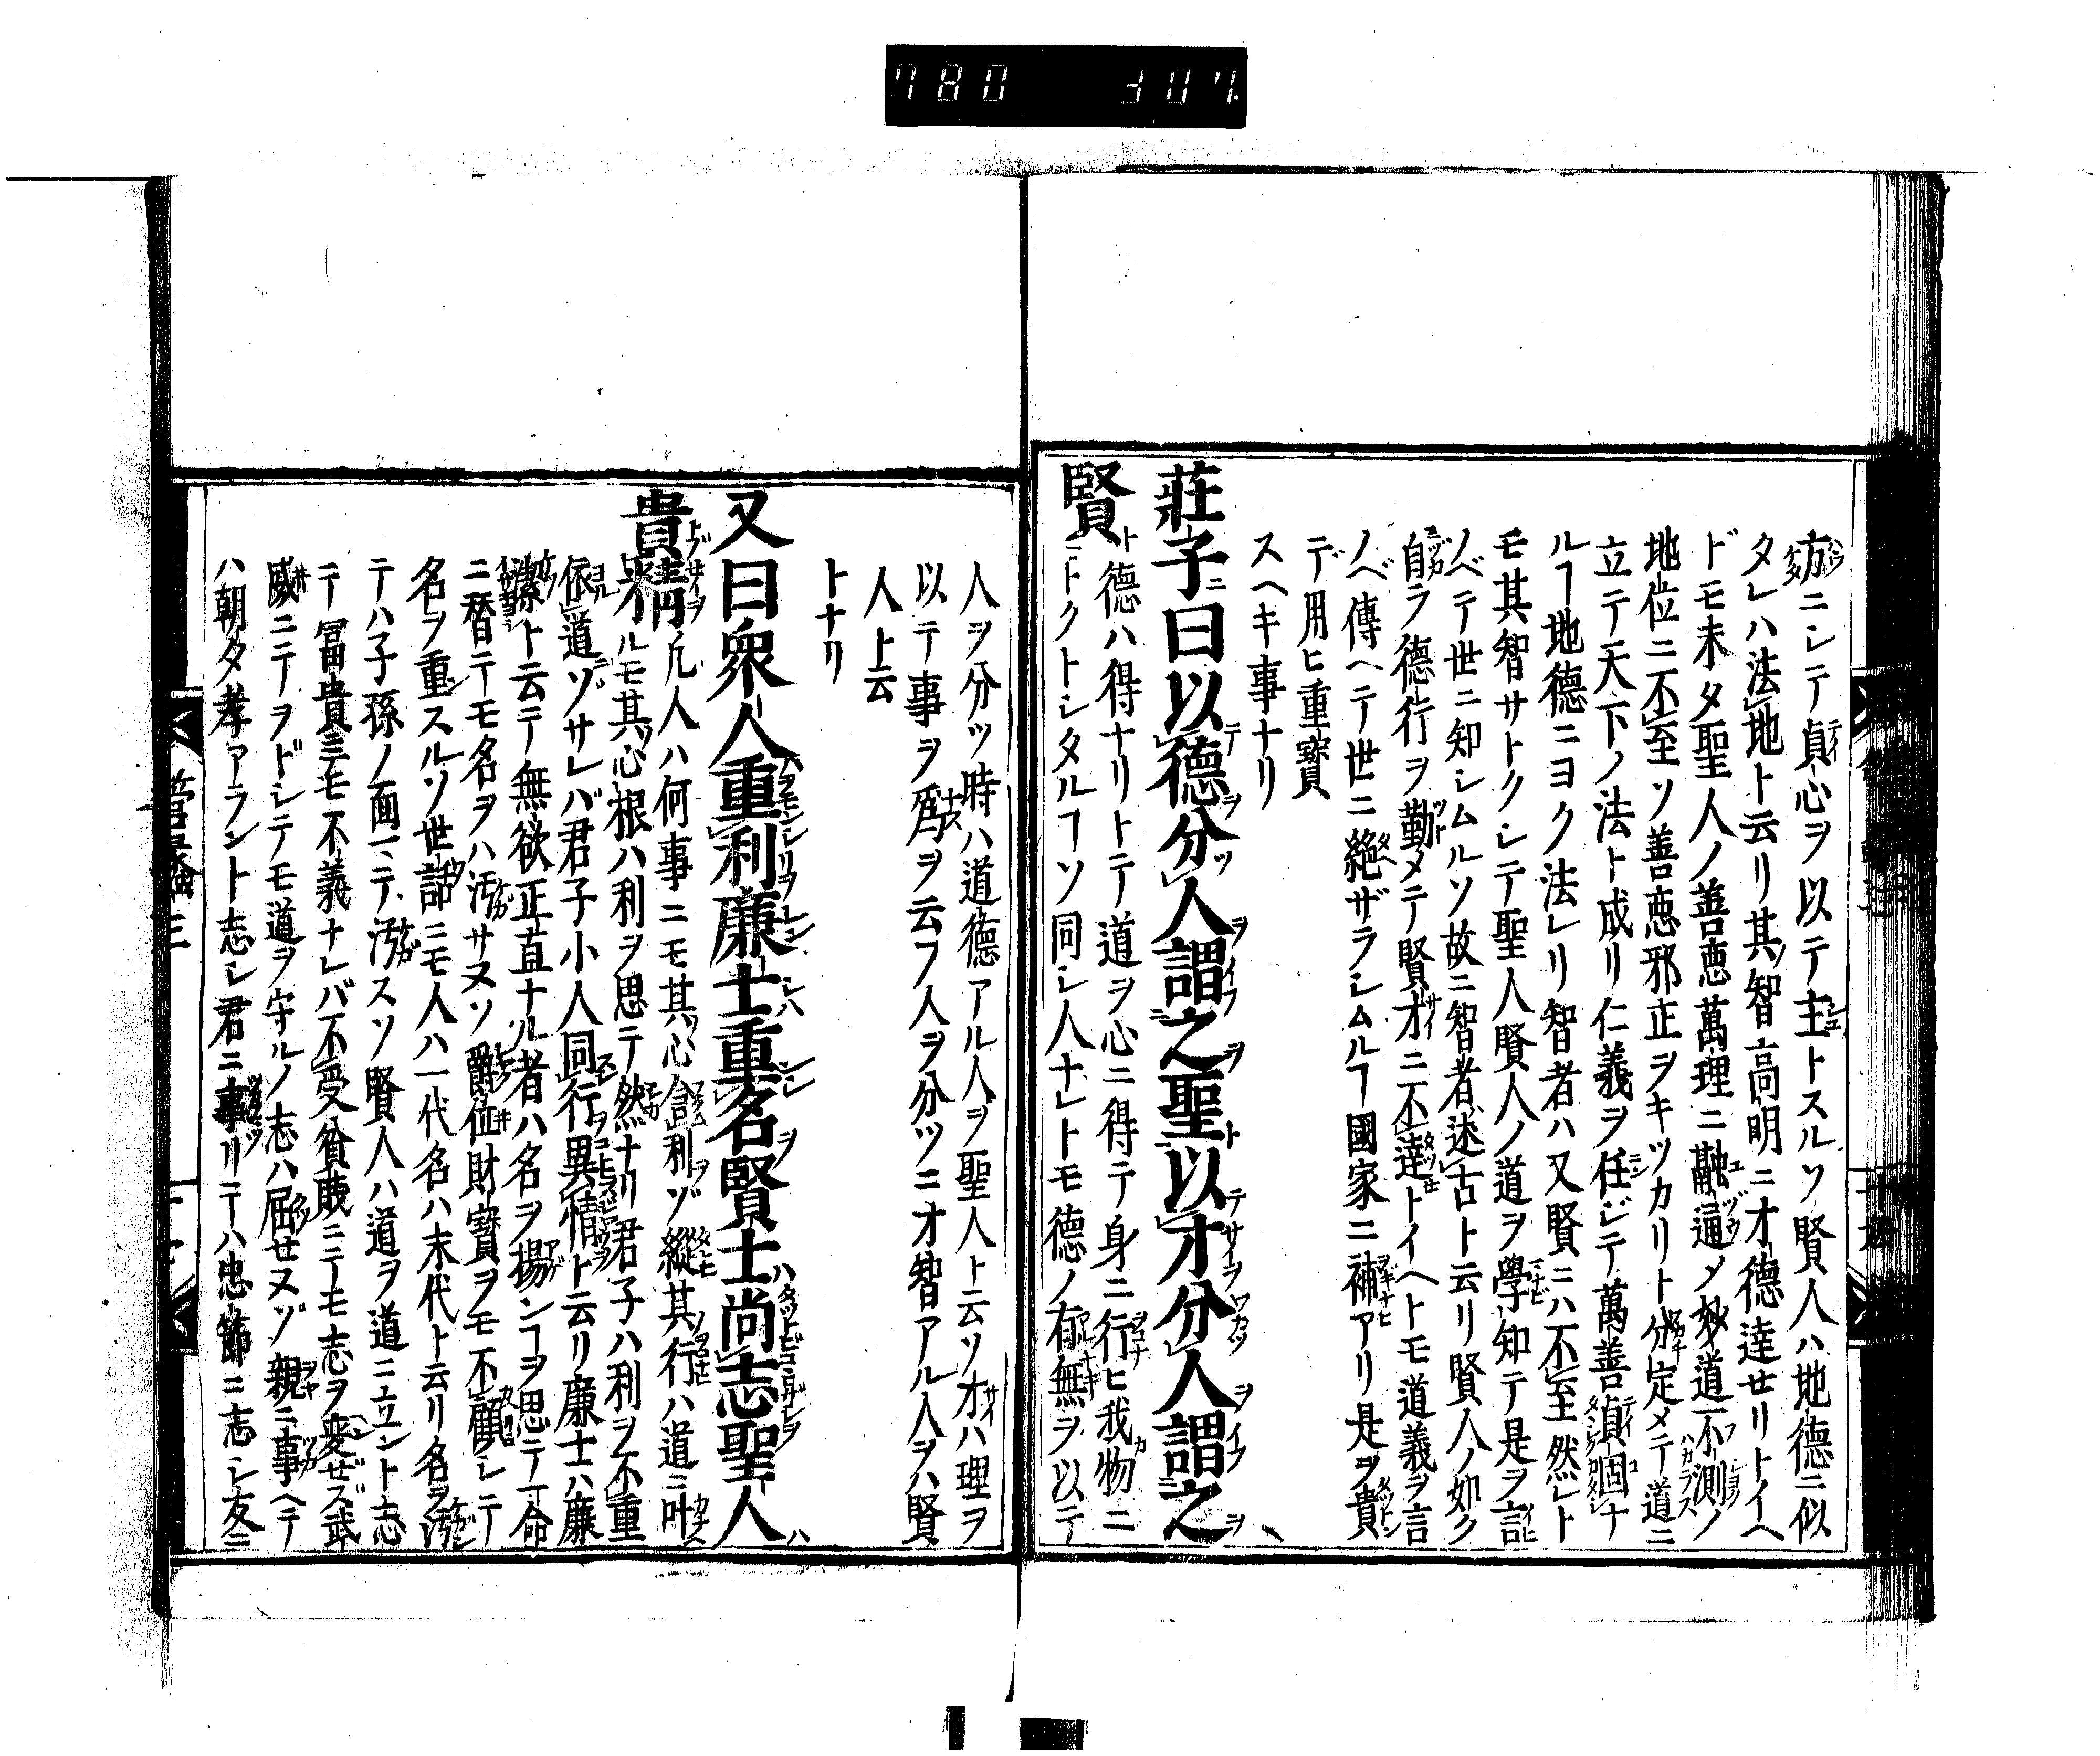 780 307.
方ニシテ貞心ヲ以テ主トスルソ賢人ハ地德ニ似
タレハ法地ト云リ其智高明ニ才德逹せリトイヘ
ドモ未タ聖人ノ善悪萬理ニ融通メ妙道不測ノ
地位ニ不至ソ善悪邪正ヲキツカリト分定メテ道ニ
立テ天下ノ法ト成リ仁義ヲ任ジテ萬善貞固ナ
ルヿ地德ニヨク法レリ智者ハ又賢ニハ不至然レト
モ其智サトクシテ聖人賢人ノ道ヲ學知テ是ヲ言
ノベテ世ニ知シムルソ故ニ智者述古ト云リ賢人ノ如ク
自ラ德行ヲ勤メテ賢才ニ不逹トイヘトモ道義ヲ言
ノベ傳ヘテ世ニ絶ザラシムルヿ國家ニ補アリ是ヲ貴
デ用ヒ重寶
スヘキ事ナリ
莊子曰以德分人謂之聖以才分人謂之
賢 德ハ得ナリトテ道ヲ心ニ得テ身ニ行ヒ我物ニ
トクトシタルヿソ同シ人ナレトモ德ノ有無ヲ以テ
人ヲ分ツ時ハ道德アル人ヲ聖人ト云ソ才ハ理ヲ
以テ事ヲ爲ヲ云フ人ヲ分ツニ才智アル人ヲハ賢
人上云
トナリ
又曰衆人重利廉士重名賢士尚志聖人
貴精 凡人ハ何事ニモ其心倉利ゾ縱其行ハ道ニ叶
ルモ其心根ハ利ヲ思テ然ナリ君子ハ利ヲ不重
依道ゾサレバ君子小人同行異情ト云リ廉士ハ廉
潔ト云テ無欲正直ナル者ハ名ヲ揚ンヿヲ思テ一命
ニ替テモ名ヲハ汚サヌソ爵位財寶ヲモ不顧シテ
名ヲ重スルソ世話ニモ人ハ一代名ハ末代ト云リ名ヲ汚
テハ子孫ノ面ニテ汚スソ賢人ハ道ヲ道ニ立ント志
テ冨貴ニモ不義ナレバ不受貧賤ニモ志ヲ変ゼズ武
威ニテヲドシテモ道ヲ守ルノ志ハ屈せヌゾ親ニ事ヘテ
ハ朝夕孝アラント志シ君ニ事リテハ忠節ニ志シ友ニ